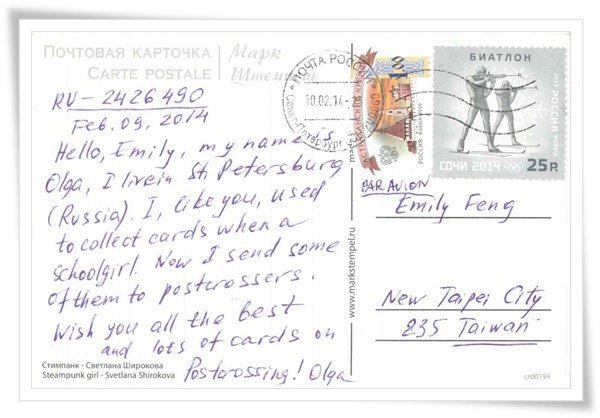 ПОЧТОВАЯ КАРТОЧКА
CARTE POSTALE
Марк
Штемпель
RU-2426490
Feb. 09, 2014
Hello, Emily, my name is
Olga, I live in St. Petersburg
(Russia). I, like you, used
to collect cards when a
schoolgirl. Now I send some
of them to postcrossers.
Wish you all the best
and lots of cards on
Postcrossing! Olga
Стимпанк - Светлана Широкова
Steampunk girl - Svetlana Shirokova
www.markstempel.ru
ПОЧТА РОССИИ
10.02.14
Санкт-Петербург
100
АСТРАХАНСКИЙ КРЕМЛЬ
РОССИЯ ROSSIJA 2009
БИАТЛОН
РОССИЯ
СОЧИ 2014
25Р.
PAR AVION
Emily Feng
New Taipei City
235 Taiwan
crd0199